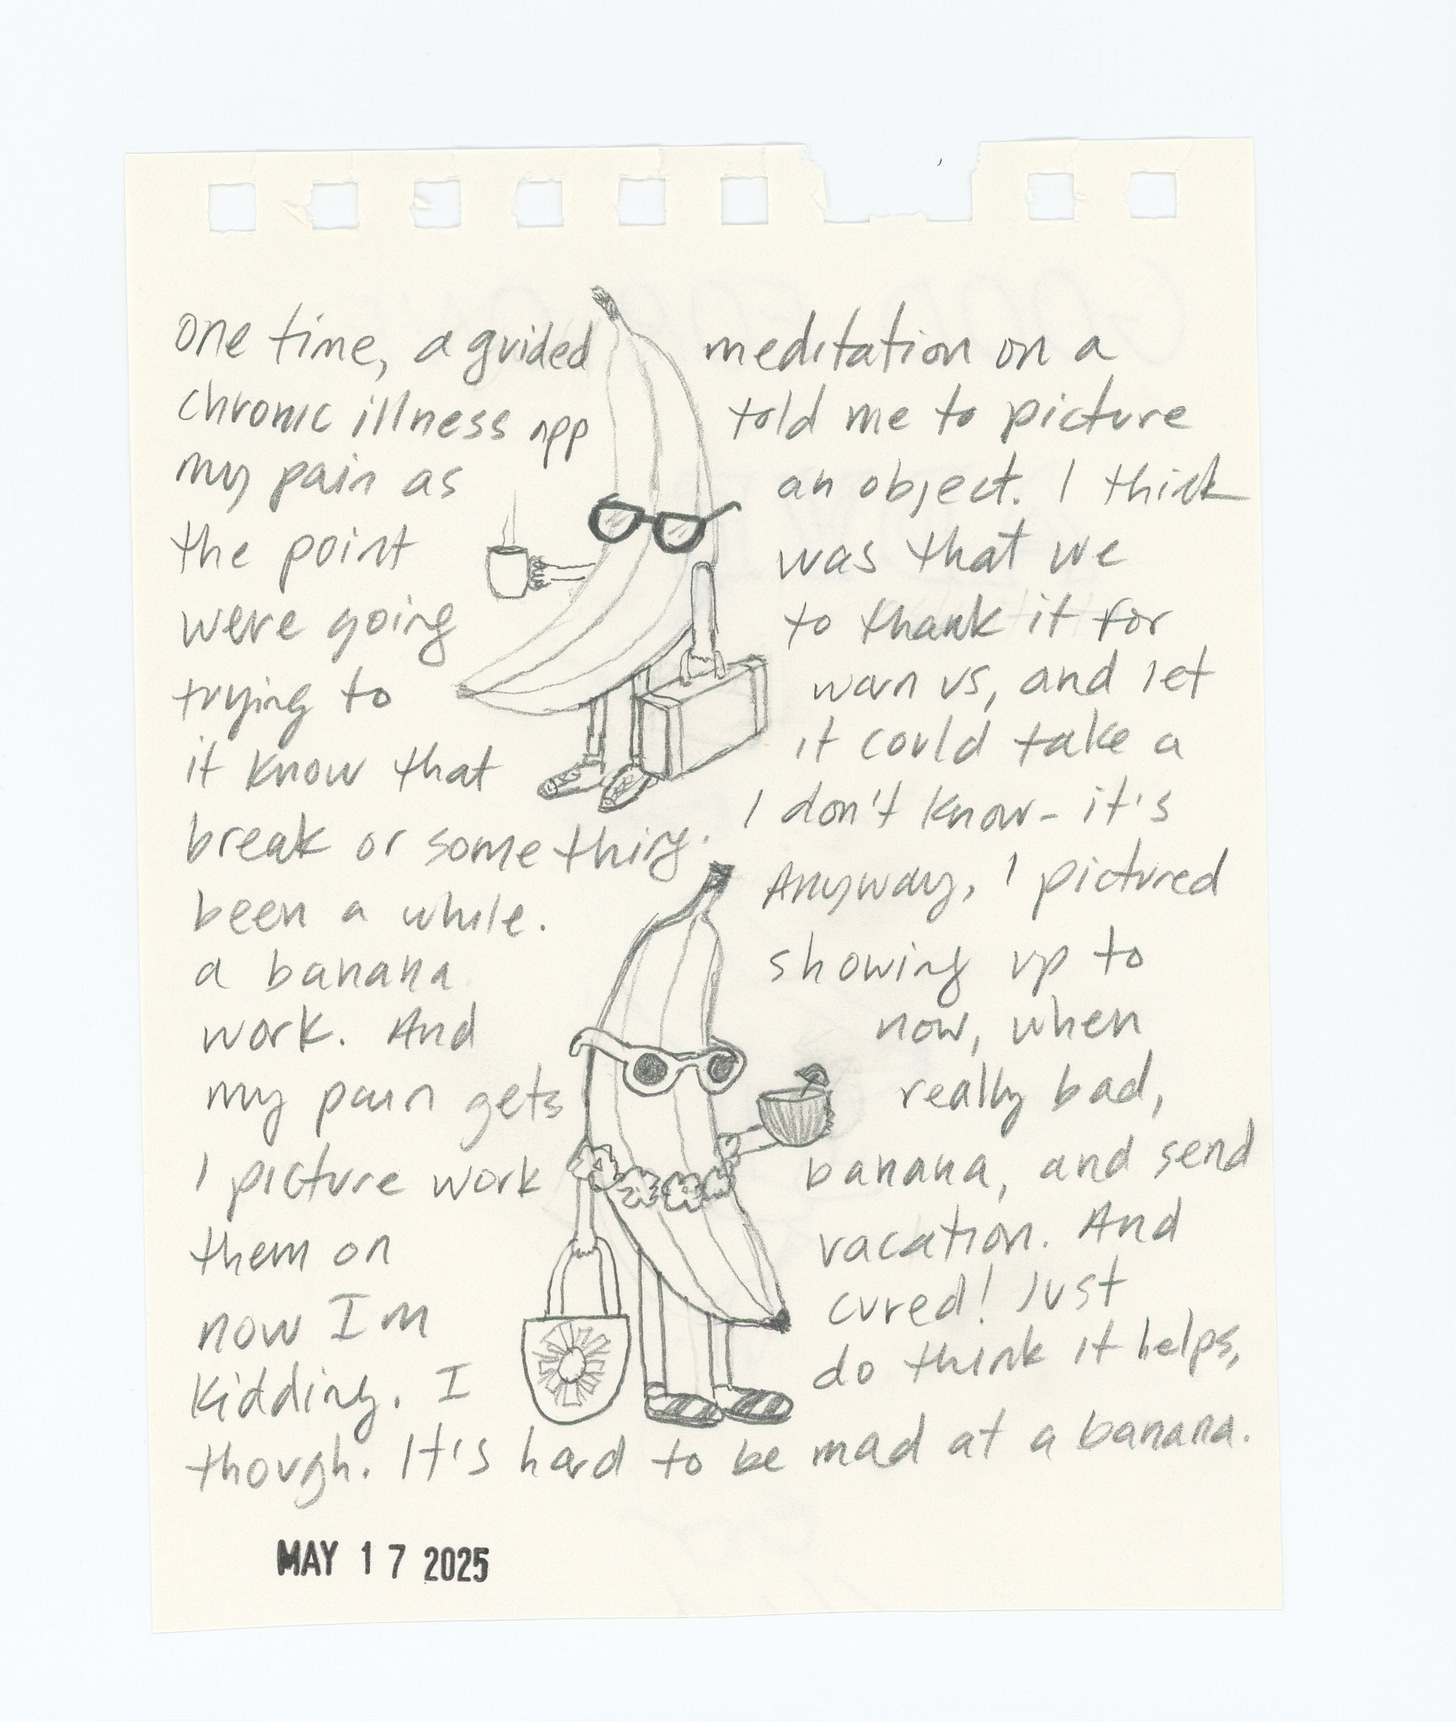 One time, a guided meditation on a
chronic illness app told me to picture
my pain as an object. I think
the point was that we
were going to thank it for
trying to warn us, and let
it know that it could take a
break or something. I don't know - it's
been a while. Anyway, I pictured
a banana showing up to
work. And now, when
my pain gets really bad,
I picture work banana, and send
them on vacation. And
now Im cured! Just
kidding. I do think it helps,
though. It's hard to be mad at a banana.
MAY 17 2025